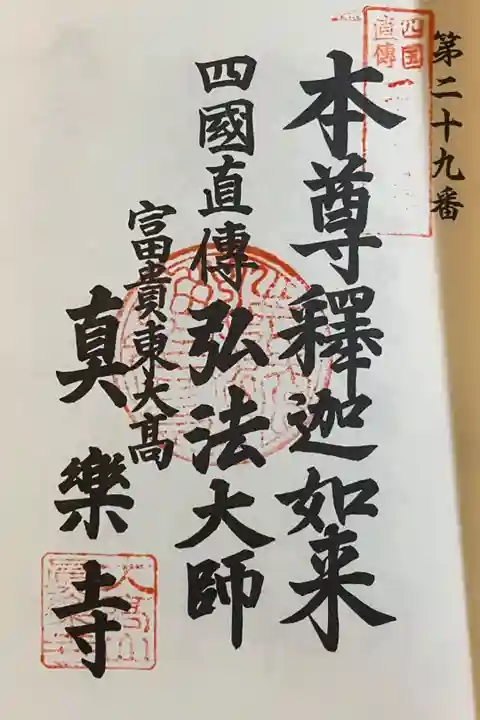 第二十九番
四国
直傳
本尊釋迦如来
四國直傳弘法大師
富貴東大高
真樂寺